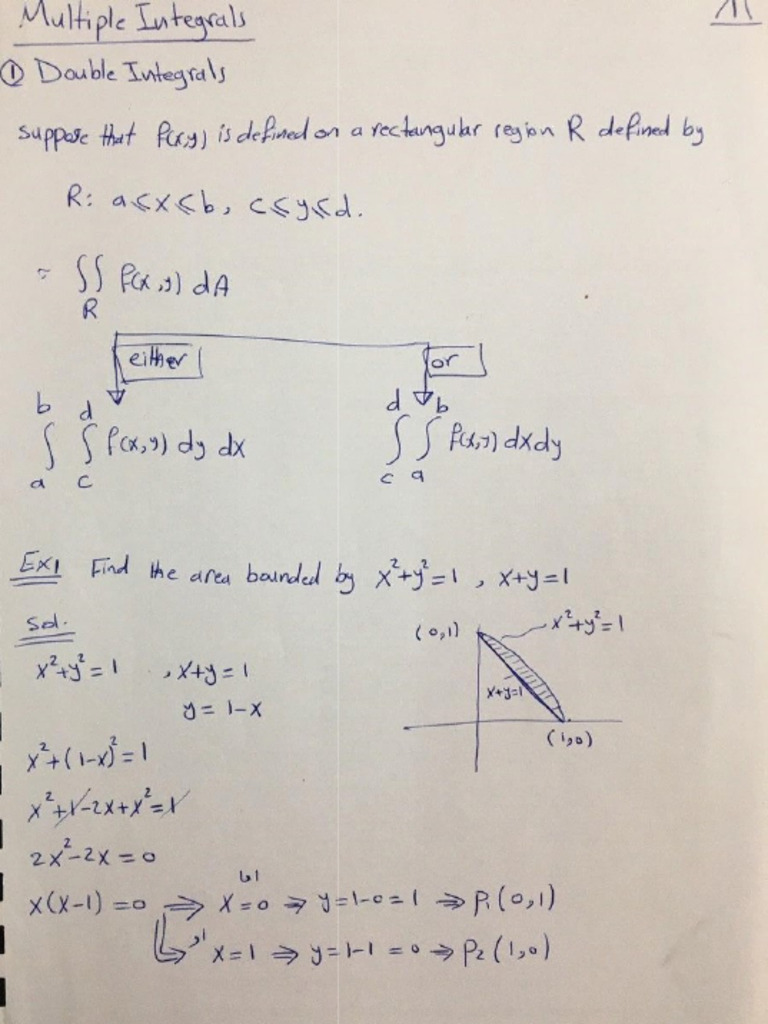 Multiple Integrals
① Double Integrals
suppose that f(x,y) is defined on a rectangular region R defined by
R: a⩽x⩽b, c⩽y⩽d.
= ∬_R f(x,y) dA
either or
∫_a^b ∫_c^d f(x,y) dy dx ∫_c^d ∫_a^b f(x,y) dxdy
Ex1 Find the area bounded by x²+y²=1 , x+y=1
Sol.
(0,1) x²+y²=1
x²+y²=1 , x+y=1
x+y=1
y=1-x
(1,0)
x²+(1-x)²=1
x²+1-2x+x²=1
2x²-2x=0
اما
x(x-1)=0 ⇒ x=0 ⇒ y=1-0=1 ⇒ P₁(0,1)
او x=1 ⇒ y=1-1=0 ⇒ P₂(1,0)